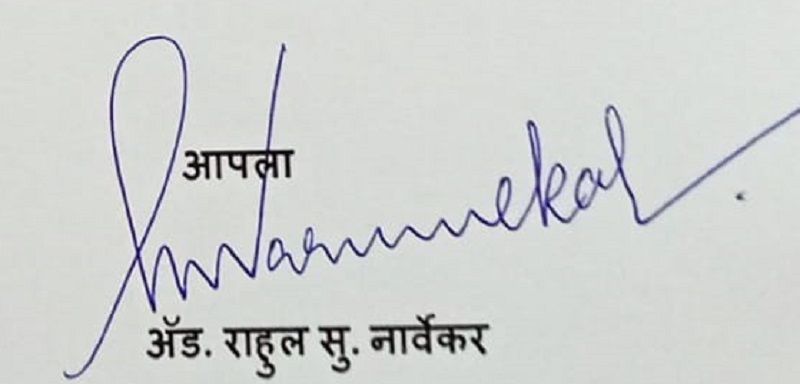 आपला
Narvekar
ॲड. राहुल सु. नार्वेकर